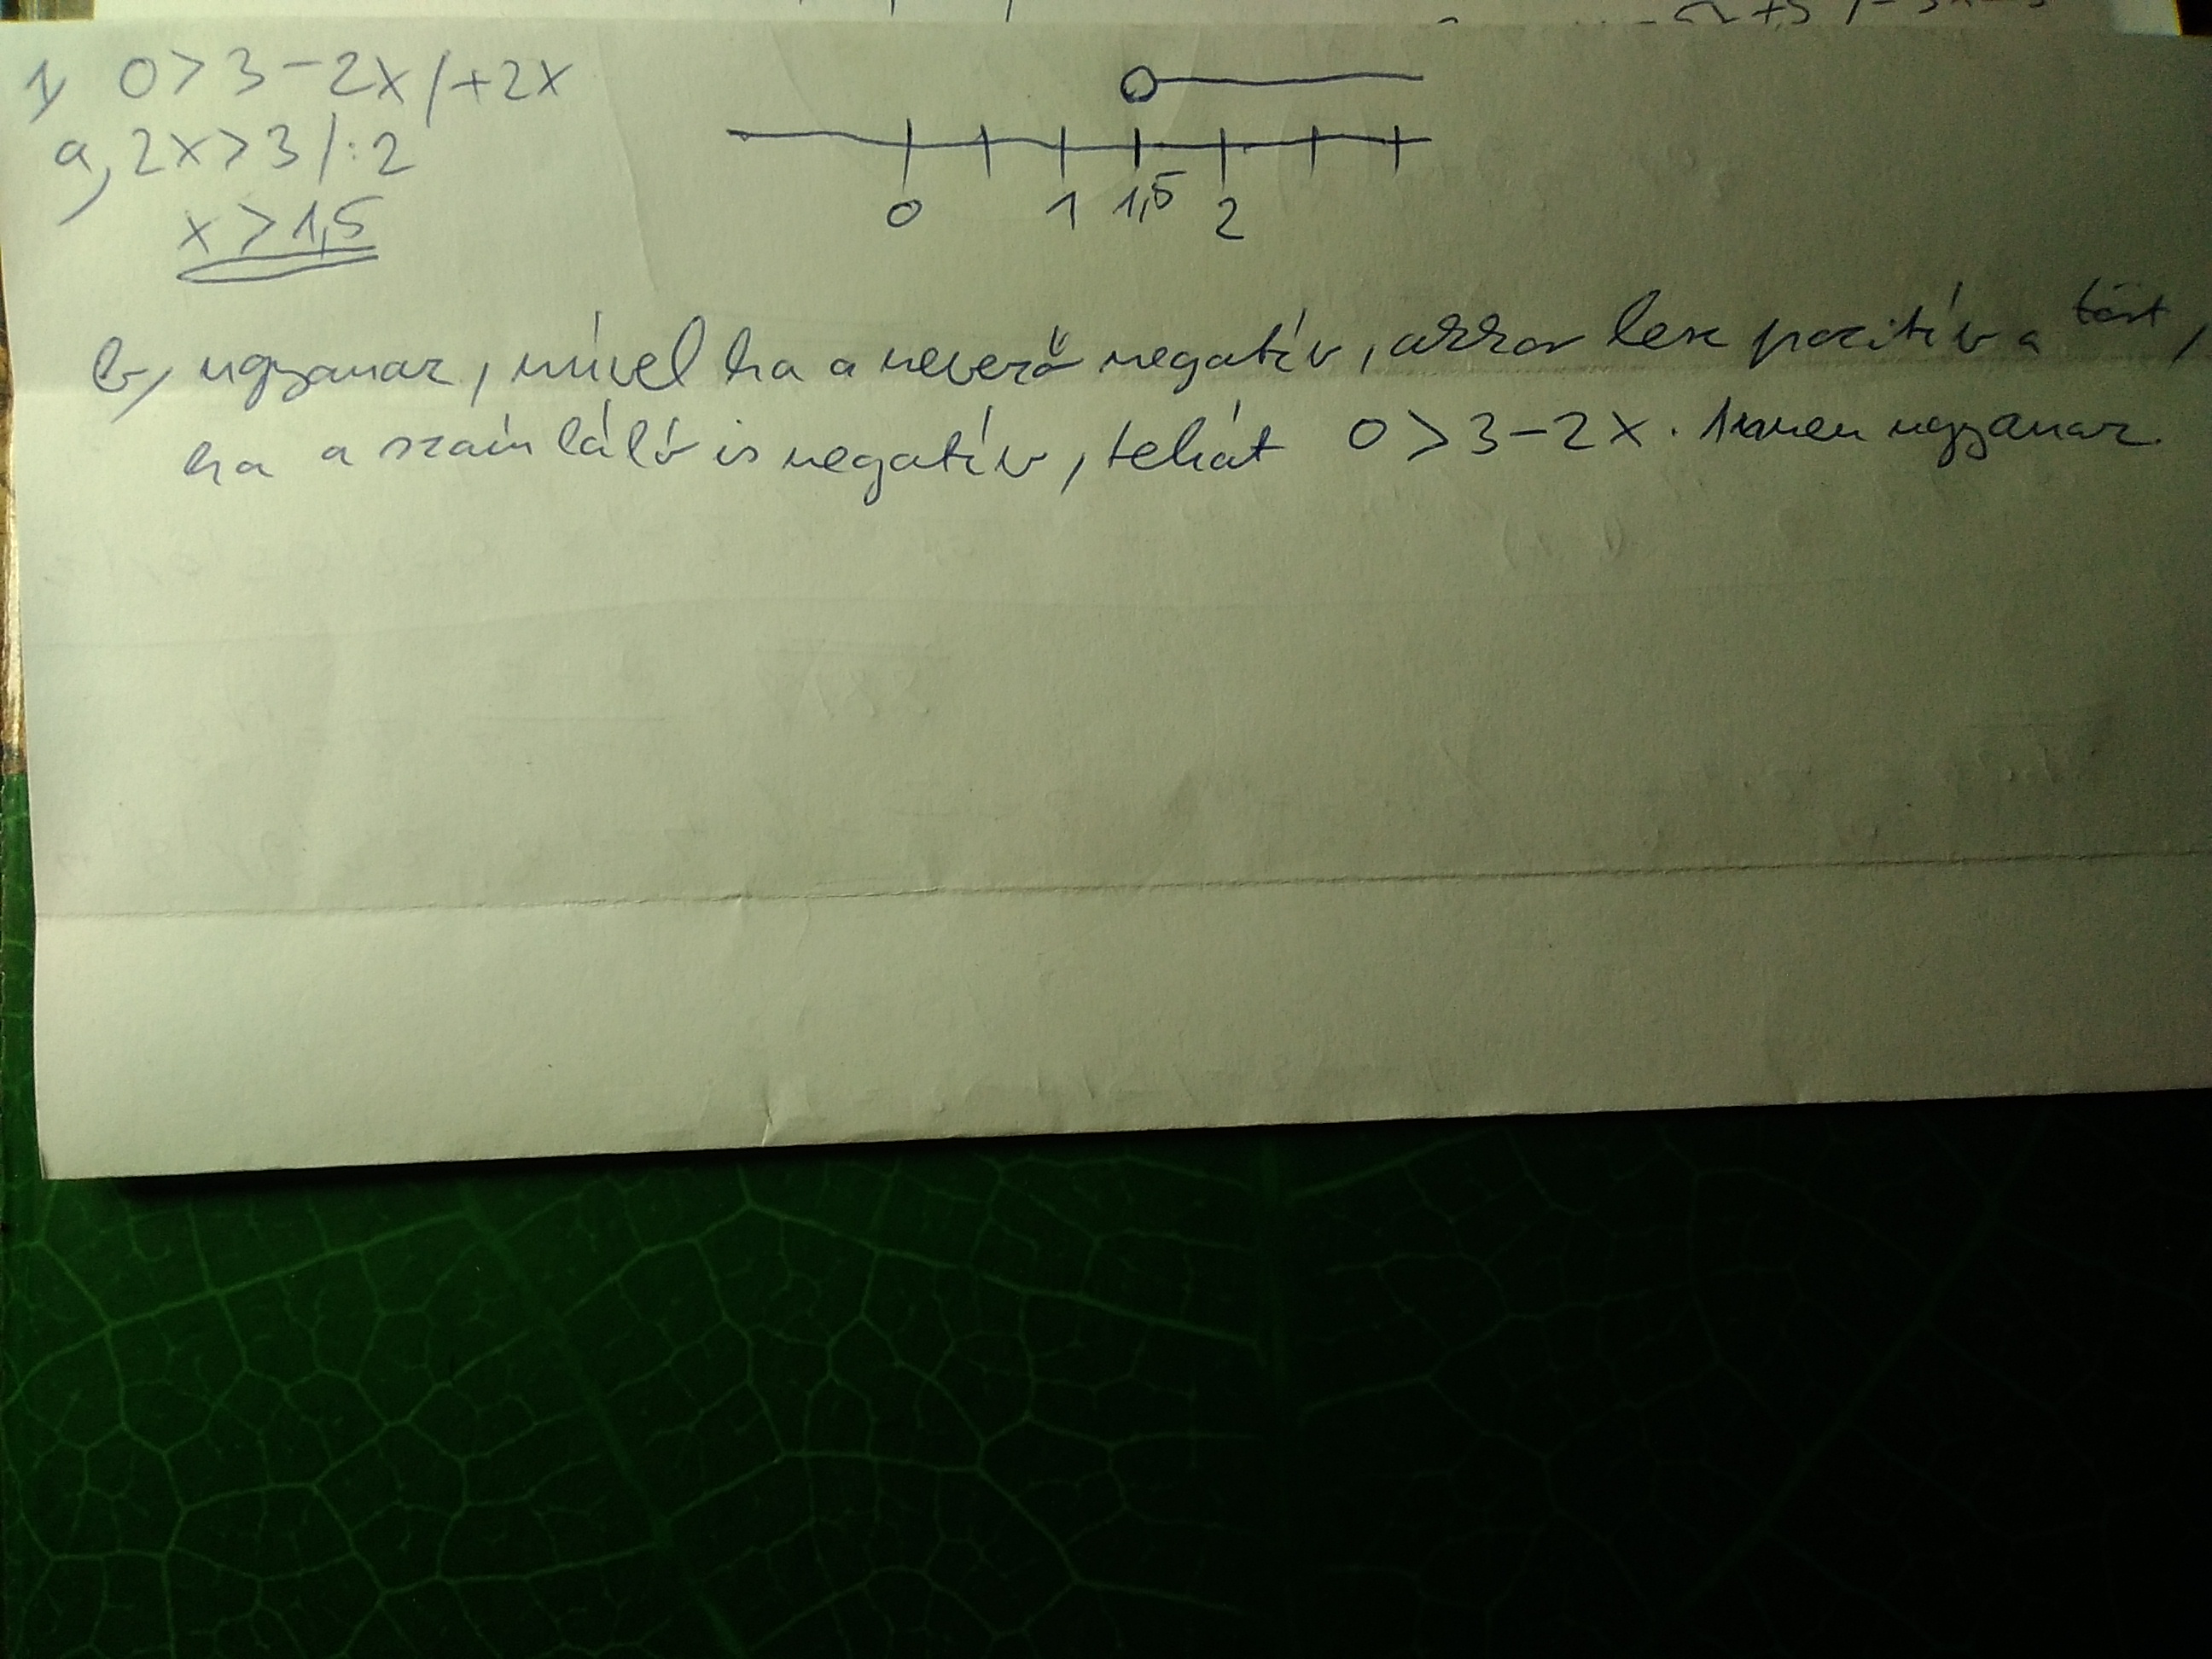 1, 0 > 3 - 2x /+2x
a, 2x > 3 /:2
x > 1,5
0 1 1,5 2
b, ugyanaz, mivel ha a nevező negatív, akkor lesz pozitív a tört,
ha a számláló is negatív, tehát 0 > 3 - 2x. Innen ugyanaz.